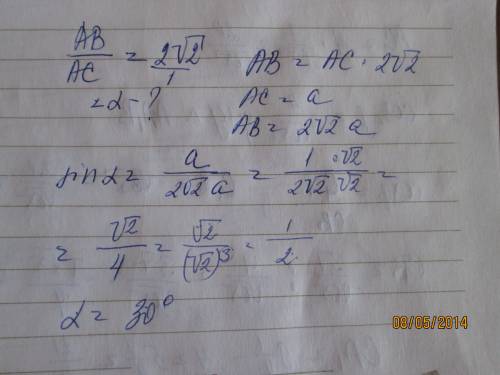 AB/AC = 2√2/1    AB = AC · 2√2
= α - ?    AC = a
AB = 2√2 a
sin α = a/(2√2 a) = (1 · √2)/(2√2 √2) =
= √2/4 = √2/(√2)³ = 1/2
α = 30°
08/05/2014